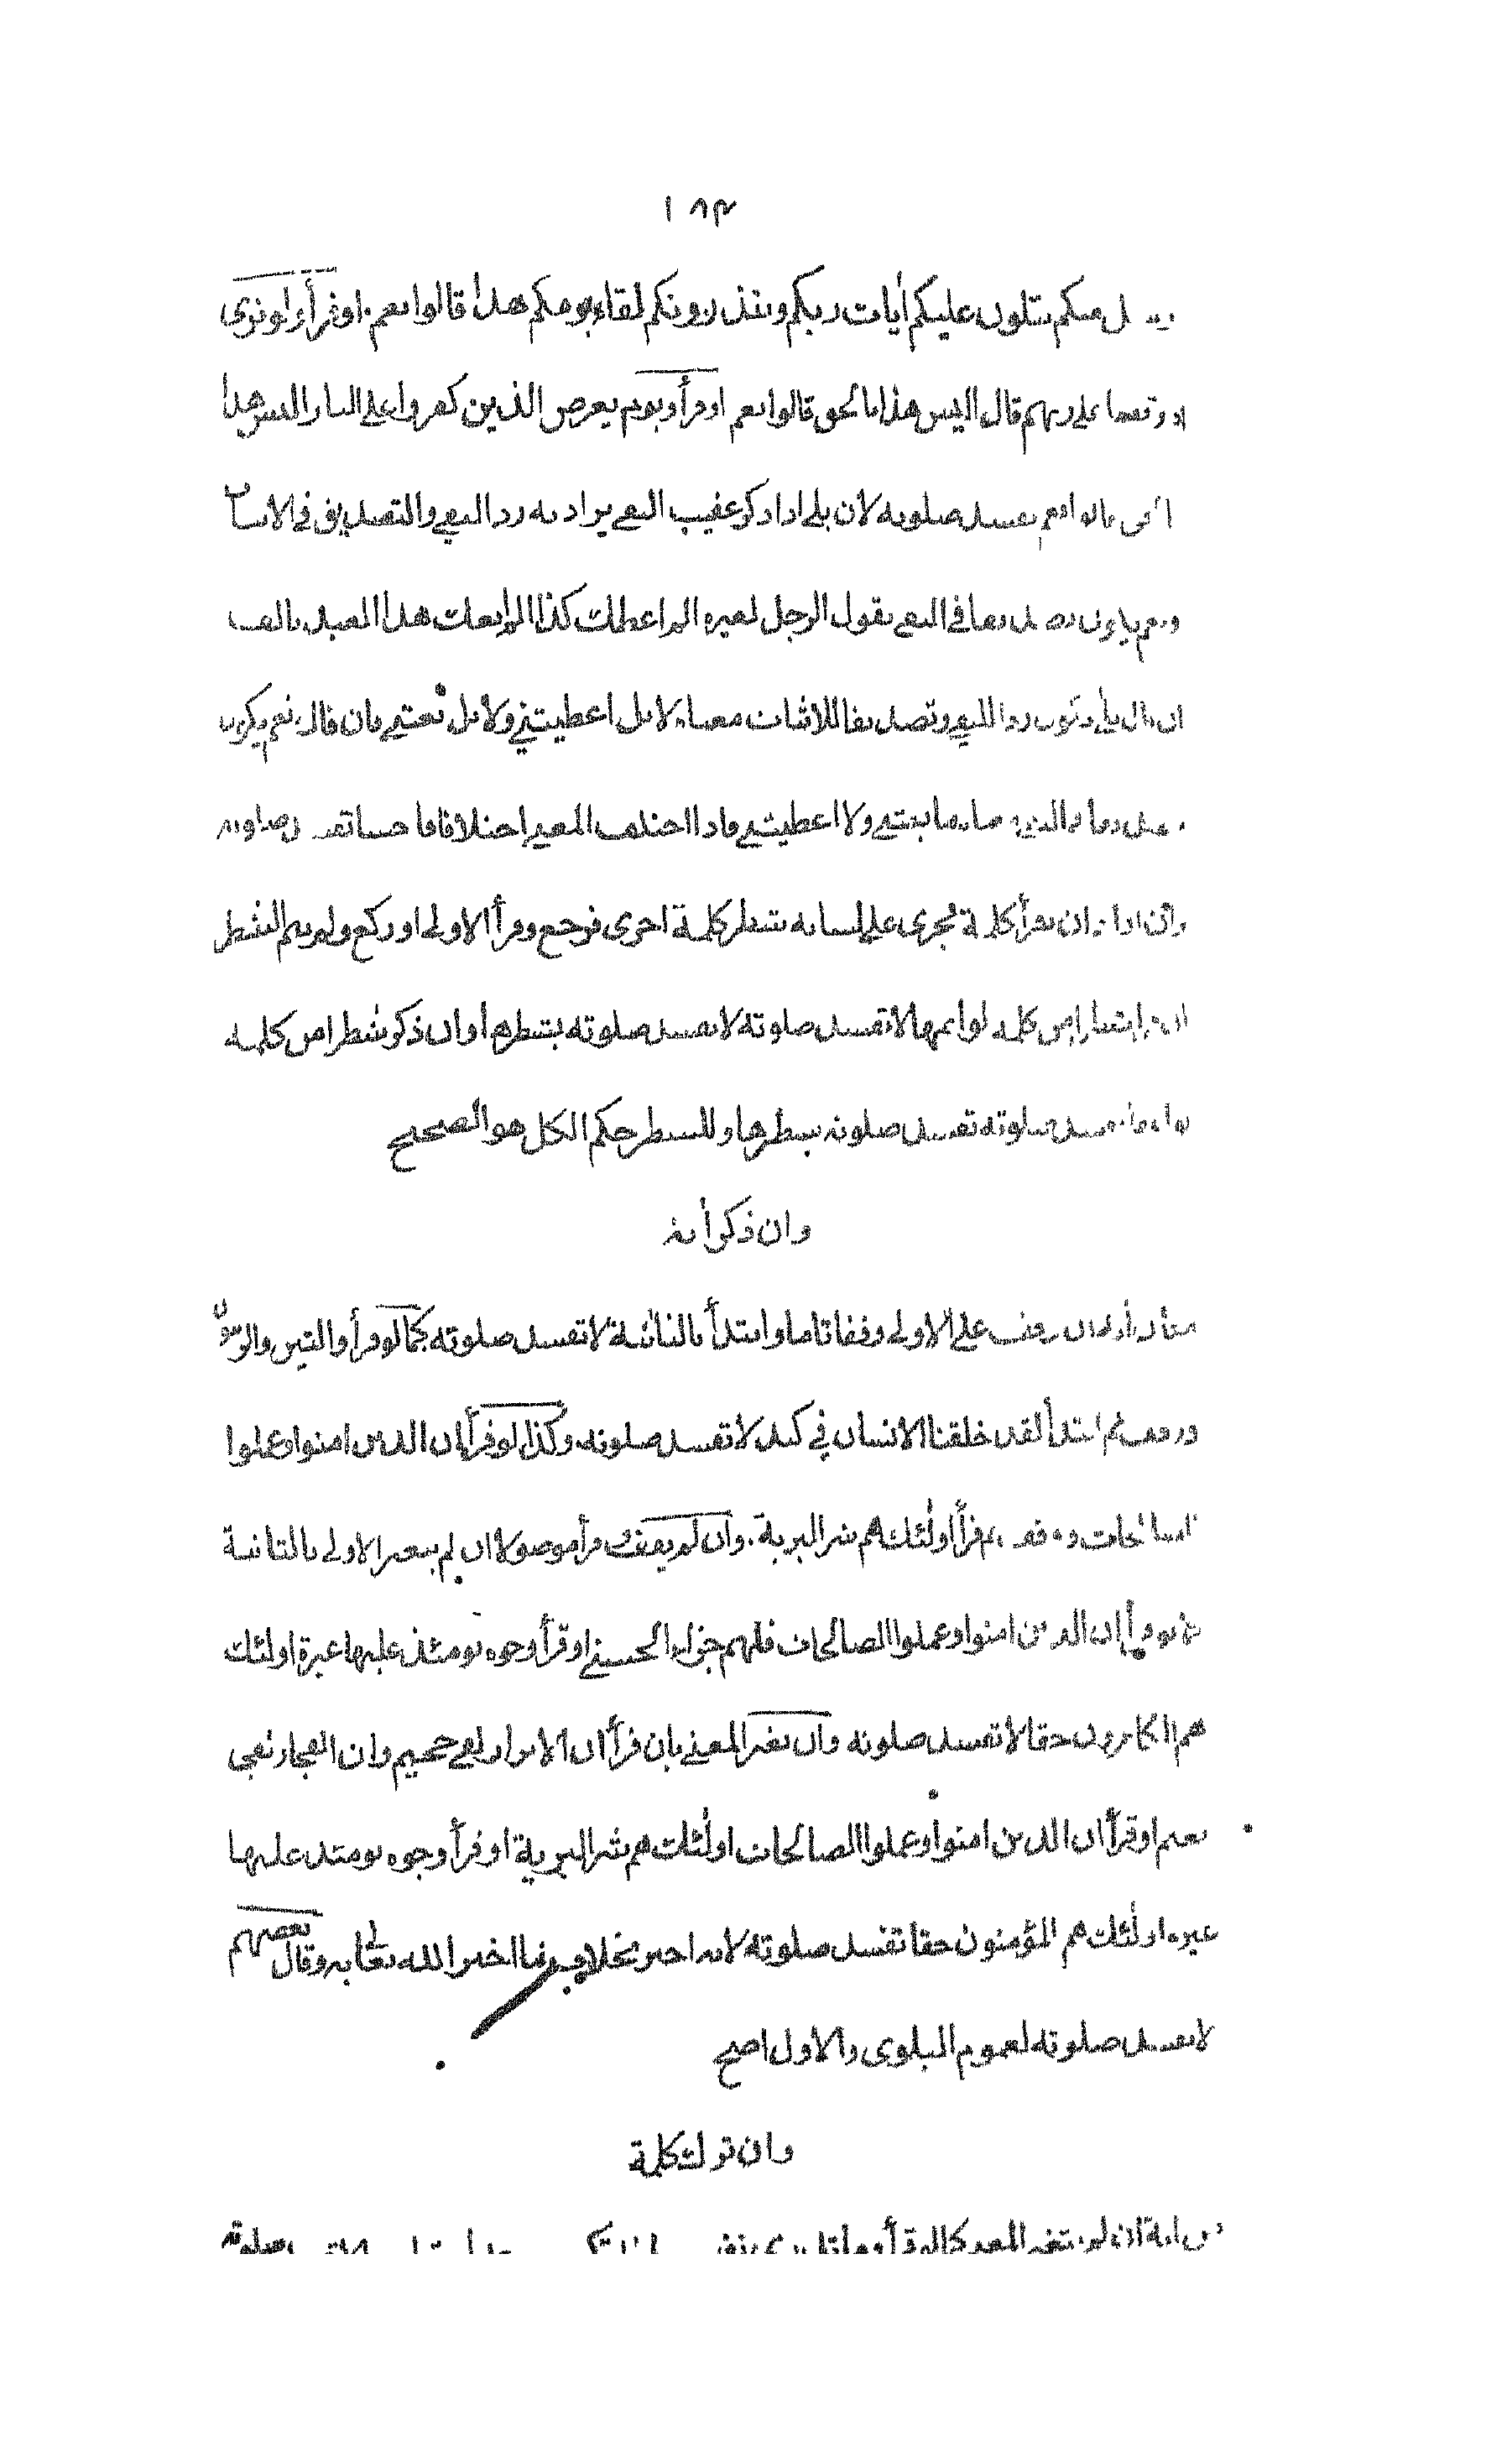 ١٨٣
منكم يتلون عليكم اٰيات ربكم وينذرونكم لقاء يومكم هذا قالوا نعم اوقرأ ولو ترى
اذ وقفوا على ربهم قال اليس هذا بالحق قالوا نعم اوقرأ ويوم يعرض الذين كفروا على النار اليس هذا
نعم تفسد صلوته لان بلى اذا ذكر عقيب النفي يراد به رد النفي والتصديق في الاثبات
ونعم يكون تصديقا في النفي يقول الرجل لغيره اما اعطيتك كذا اما بعت هذا العبد بالف
ان قال بلى يكون ردا للنفي وتصديقا للاثبات معناه لا بل اعطيتني ولا بل بعتني فان قال نعم يكون
تصديقا في النفي معناه ما بعتني ولا اعطيتني فاذا اختلف المعنى اختلافا فاحشا تفسد صلوته
وان اراد ان يقرأ كلمة فجرى على لسانه شطر كلمة اخرى فرجع وقرأ الاولى او ركع ولم يتم الشطر
ان قرأ شطرا من كلمة لو اتمها لا تفسد صلوته لا تفسد صلوته بشطرها وان ذكر شطرا من كلمة
لو اتمها تفسد صلوته تفسد صلوته بشطرها وللشطر حكم الكل هو الصحيح
وان ذكر اٰية
مكان اٰية ان وقف على الاولى وقفا تاما وابتدأ بالثانية لا تفسد صلوته كما لو قرأ والتين والزيتون
ووقف ثم ابتدأ لقد خلقنا الانسان في كبد لا تفسد صلوته وكذا لو قرأ ان الذين امنوا وعملوا
الصالحات ووقف ثم قرأ اولٰئك هم شر البرية وان لم يقف وقرأ موصولا ان لم يتغير الاولى بالثانية
كما لو قرأ ان الذين امنوا وعملوا الصالحات فلهم جزاء الحسنى او قرأ وجوه يومئذ عليها غبرة اولئك
هم الكافرون حقا لا تفسد صلوته وان تغير المعنى بان قرأ ان الابرار لفي جحيم وان الفجار لفي
نعيم او قرأ ان الذين امنوا وعملوا الصالحات اولٰئك هم شر البرية او قرأ وجوه يومئذ عليها
غبرة اولٰئك هم المؤمنون حقا تفسد صلوته لانه اخبر بخلاف ما اخبر الله تعالى به وقال بعضهم
لا تفسد صلوته لعموم البلوى والاول اصح
وان ترك كلمة
من اية ان لم يتغير المعنى كما لو قرأ وما تدري نفس صلوته